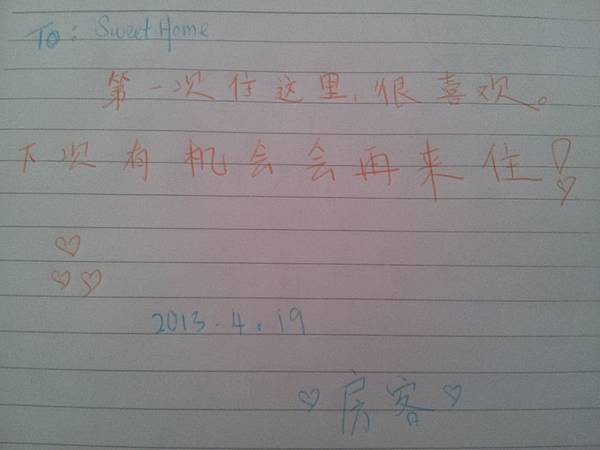 To: Sweet Home
第一次住这里,很喜欢。
下次有机会会再来住!
2013.4.19
房客